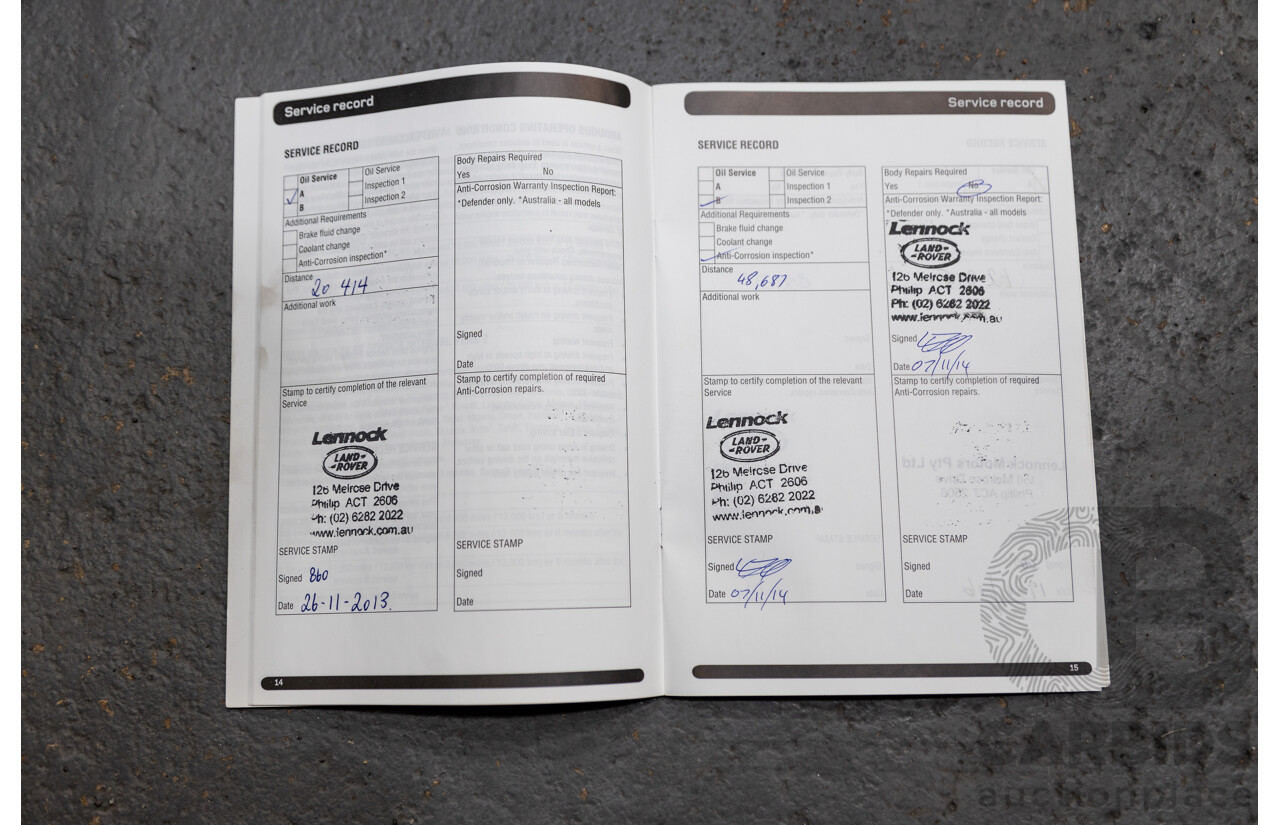 Service record
SERVICE RECORD
Oil Service
A
B
Oil Service
Inspection 1
Inspection 2
Additional Requirements
Brake fluid change
Coolant change
Anti-Corrosion inspection*
Distance
20 414
Additional work
Stamp to certify completion of the relevant
Service
Lennock
LAND-
-ROVER
126 Melrose Drive
Phillip ACT 2606
Ph: (02) 6282 2022
www.lennock.com.au
SERVICE STAMP
Signed 860
Date 26-11-2013.
Body Repairs Required
Yes No
Anti-Corrosion Warranty Inspection Report:
*Defender only. *Australia - all models
Signed
Date
Stamp to certify completion of required
Anti-Corrosion repairs.
SERVICE STAMP
Signed
Date
14
Service record
SERVICE RECORD
Oil Service
A
B
Oil Service
Inspection 1
Inspection 2
Additional Requirements
Brake fluid change
Coolant change
Anti-Corrosion inspection*
Distance
48,687
Additional work
Stamp to certify completion of the relevant
Service
Lennock
LAND-
-ROVER
126 Melrose Drive
Phillip ACT 2606
Ph: (02) 6282 2022
www.lennock.com.au
SERVICE STAMP
Signed
Date 07/11/14
Body Repairs Required
Yes No
Anti-Corrosion Warranty Inspection Report:
*Defender only. *Australia - all models
Lennock
LAND-
-ROVER
126 Melrose Drive
Phillip ACT 2606
Ph: (02) 6282 2022
www.lennock.com.au
Signed
Date 07/11/14
Stamp to certify completion of required
Anti-Corrosion repairs.
SERVICE STAMP
Signed
Date
15
CARBIDS
auctionplace